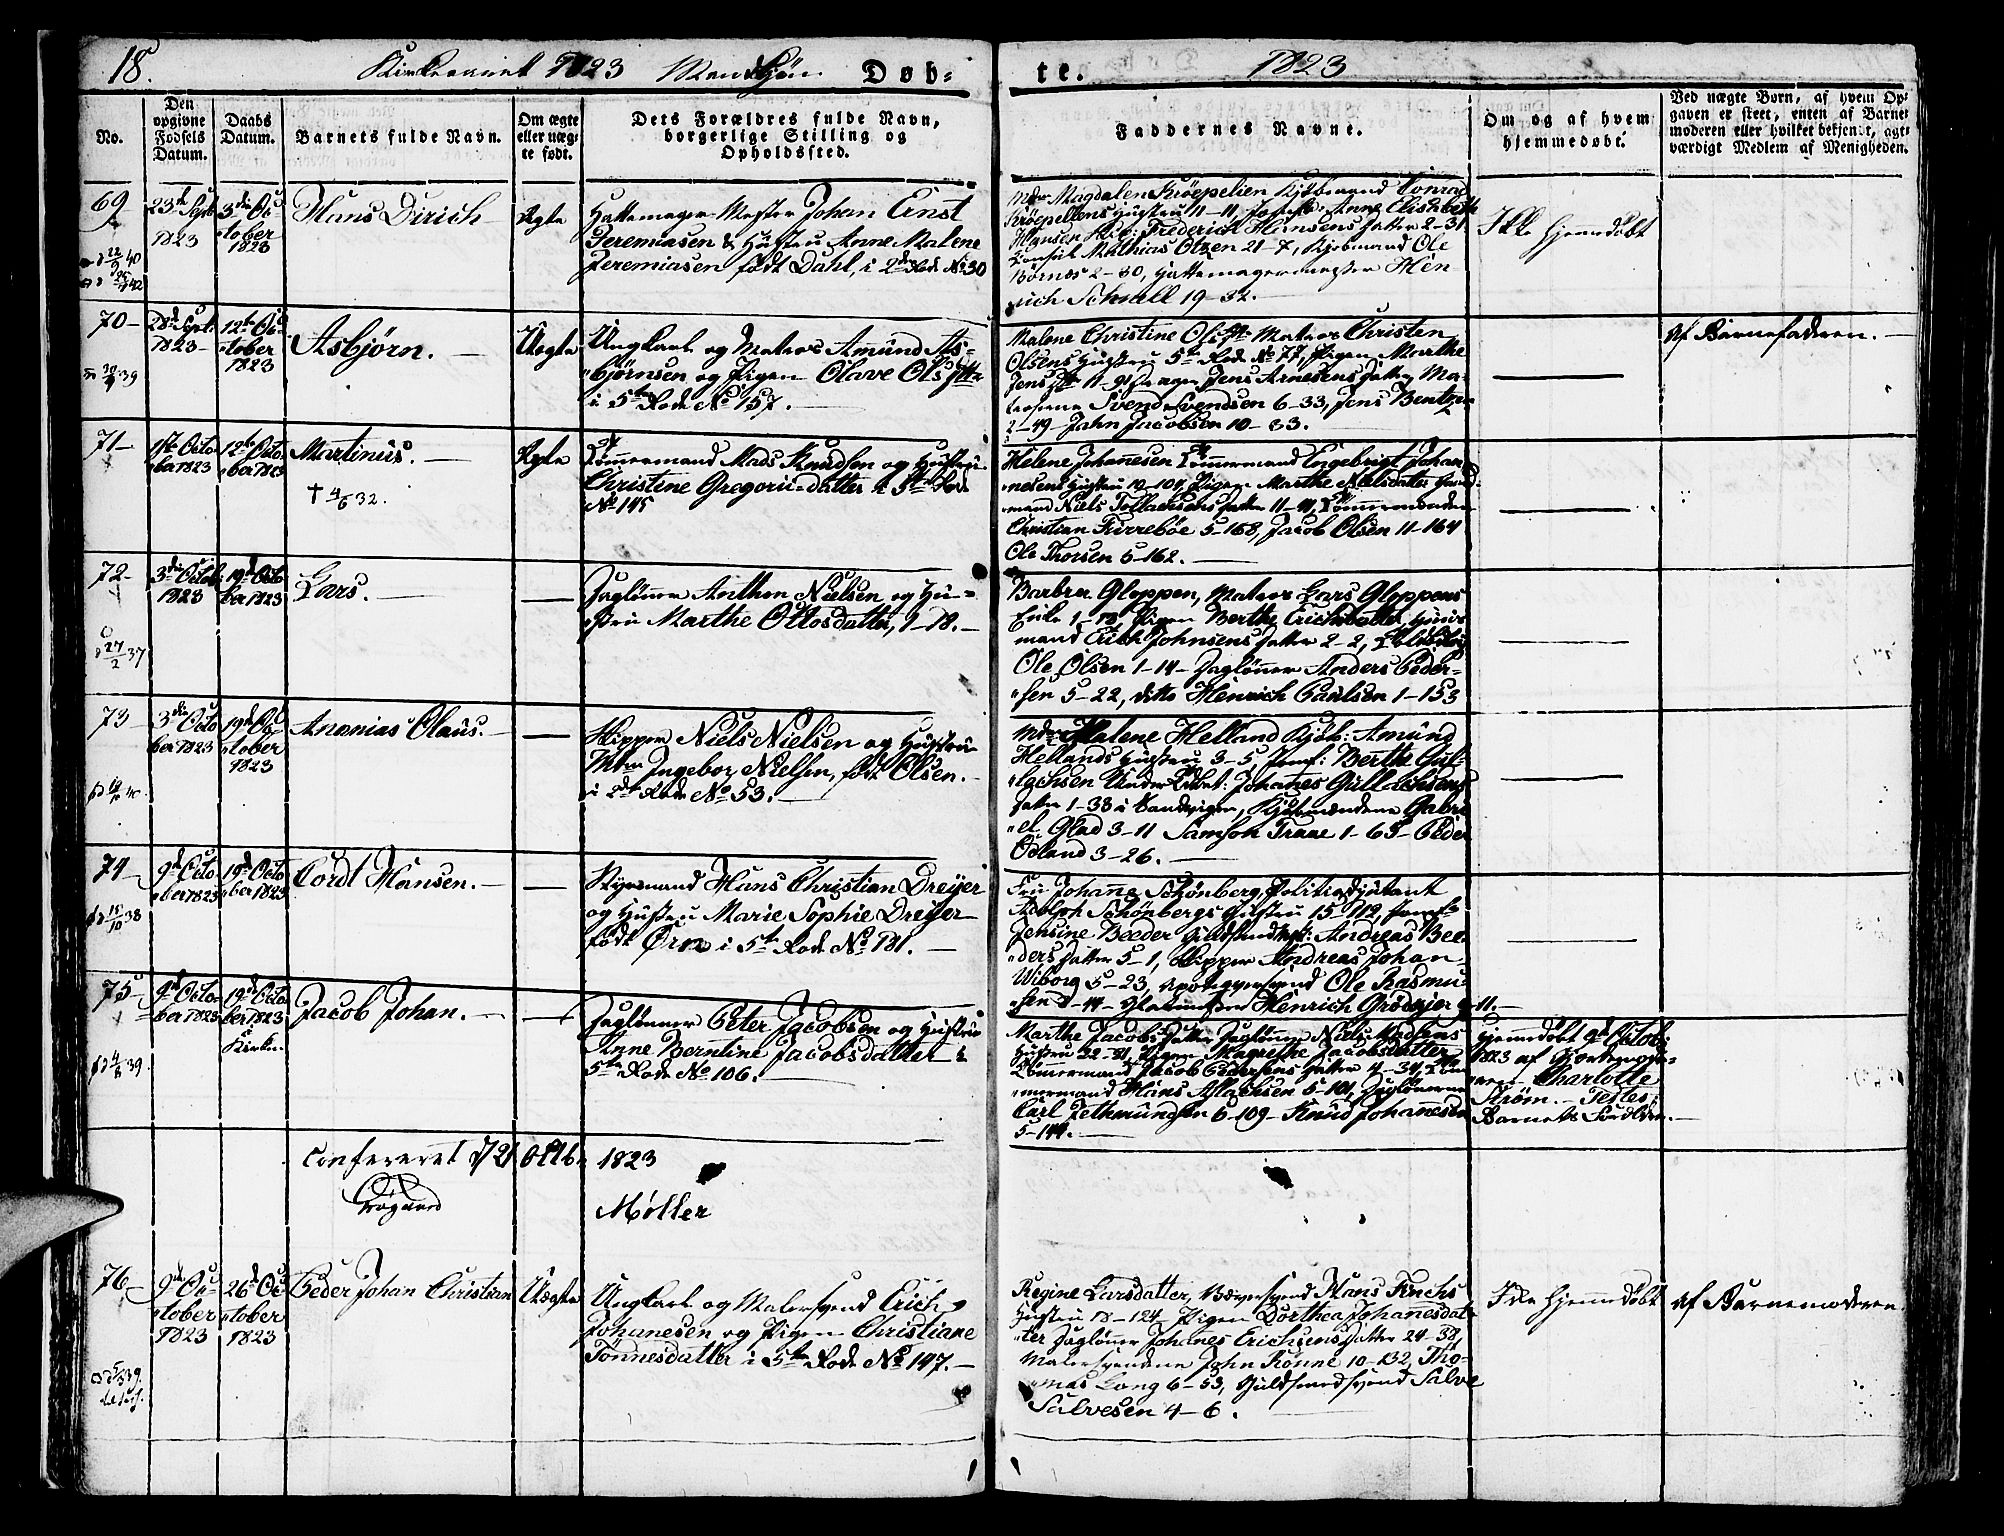 18.
Kirkeaaret 1823 Mandkjøn
Døb-
te.
1823
No.
Den opgivne Fødsels Datum.
Daabs Datum.
Barnets fulde Navn.
Om ægte eller uægte født.
Dets Forældres fulde Navn, borgerlige Stilling og Opholdssted.
Faddernes Navne.
Om og af hvem hjemmedøbt.
Ved uægte Børn, af hvem Opgaven er skeet, enten af Barnemoderen eller hvilket bekjendt, agtværdigt Medlem af Menigheden.
69
23de Septb 1823
3die October 1823
Hans Dirich
Ægte
Hattemager Mester Johan Ernst
Jeremiasen & Hustru Anne Malene
Jeremiasen født Dahl, i 2den Rode No 30
Mdm Magdalen Krøepelien Kjøbmand Conrad
Krøepeliens Hustru 11-11, Jomfr: Anne Elisabeth
Hansen Frederich Hansens Datter 2-31
Consul Mathias Olzen 21-7, Kjøbmand Ole
Børnes 2-30, Hattemagermester Hen
rich Schnell 19-32.
Ikke hjemmedøbt
70
28de Sept. 1823
12te October 1823
Asbjørn.
Uægte
Ungkarl og Matros Amund As-
bjørnsen og Pigen Olave Olsdatter
i 5te Rode No 157.
Malene Christine Olsen Matros Christen
Olsens Hustru 5te Rode No 77, Pigen Marthe
Jensdtr 11-91 Jens Arnesens Datter, Ma-
troserne Svend Svendsen 6-33, Jens Bentzen
2-49 Jahn Jacobsen 10-33.
af Barnefaderen.
71
1ste October 1823
12te October 1823
Martinus.
† 4/6 32.
Ægte
Tømmermand Mads Knudsen og Hustru
Christine Gregoriidatter i 5te Rode
No 145
Helene Johanesen Tømmermand Engebrigt Johan
nesens Hustru 10-104, Pigen Marthe Nielsdatter
mand Niels Tollachsens Datter 11-41, Tømmermændene
Christian Firrebøe 5-168, Jacob Olsen 11-164
Ole Thorsen 5-162.
72
3die Octob. 1823
19de October 1823
Lars.
Dagløner Anthon Nielsen og Hu-
stru Marthe Ottosdatter, 1-18.
Barbra Gloppen, Matros Lars Gloppens
Enke 1-18, Pigen Berthe Erichsdatter, Huus
mand Erich Johnsens Datter 2-2,
Ole Olsen 1-14 Dagløner Anders Peder-
sen 5-22, ditto Henrich Paulsen 1-153
27/2 37
73
3die October 1823
19de October 1823
Ananias Olaus.
Skipper Niels Nielsen og Hustru
Mdm Ingebor Nielsen, født Olsen.
i 2den Rode No 53.
Mdm Malene Helland Kjøb: Amund
Hellands Hustru 3-5, Jomf: Berthe Gul-
lachsen Johanes Gullachsens
Datter 1-38 i Sandvigen, Kjøbmændene Gabri
el Glad 3-11 Samson Traae 1-65 Peder
Ødland 3-26.
74
9de October 1823
19de October 1823
Cordt Hansen.
Styrmand Hans Christian Dreyer
og Hustru Marie Sophie Dreyer
født Ørn i 5te Rode No 181.
Fru Johanne Schönberg, Politieadjutant
Adolph Schönbergs Hustru 15-112, Jomfr
Jensine Beeder Andreas Bee
ders Datter 5-1, Skipper Andreas Johan
Wiborg 5-23, Ole Rasmu
sen Henrich Grødeyer 9-11.
75
9de October 1823
19de October 1823 i Kirken
Jacob Johan.
Dagløner Peter Jacobsen og Hustru
Anne Berntine Jacobsdatter i
5te Rode No 106.
Marthe Jacobsdatter Dagløner Niels Madsens
Hustru 22-81, Pigen Magrethe Jacobsdatter
Tømmermand Jacob Pedersens Datter 4-34, Tøm
mermand Hans Aslachsen 5-101, Daglønerne
Carl Tethmundsen 6-109 Knud Johanesen
5-144.
Hjemmedøbt 9de Octob:
1823 af
Charlotte
Strøm. Testes:
Barnets Forældre.
Confereret d 21 Octb. 1823
Krogaard
Møller
76
9de October 1823
26de October 1823
Peder Johan Christian
Uægte
Ungkarl og Malersvend Erich
Johanesen og Pigen Christiane
Tonnesdatter i 5te Rode No 147.
Regine Larsdatter, Væversvend Hans Fuchs
Hustru 18-124 Pigen Dorthea Johanesdat-
ter Dagløner Johanes Erichsens Datter 24-38,
Malersvendene John Rönne 10-132, Tho-
mas Long 6-53, Guldsmedsvend Salve
Salvesen 4-6.
Ikke hjemmedøbt
af Barnemoderen